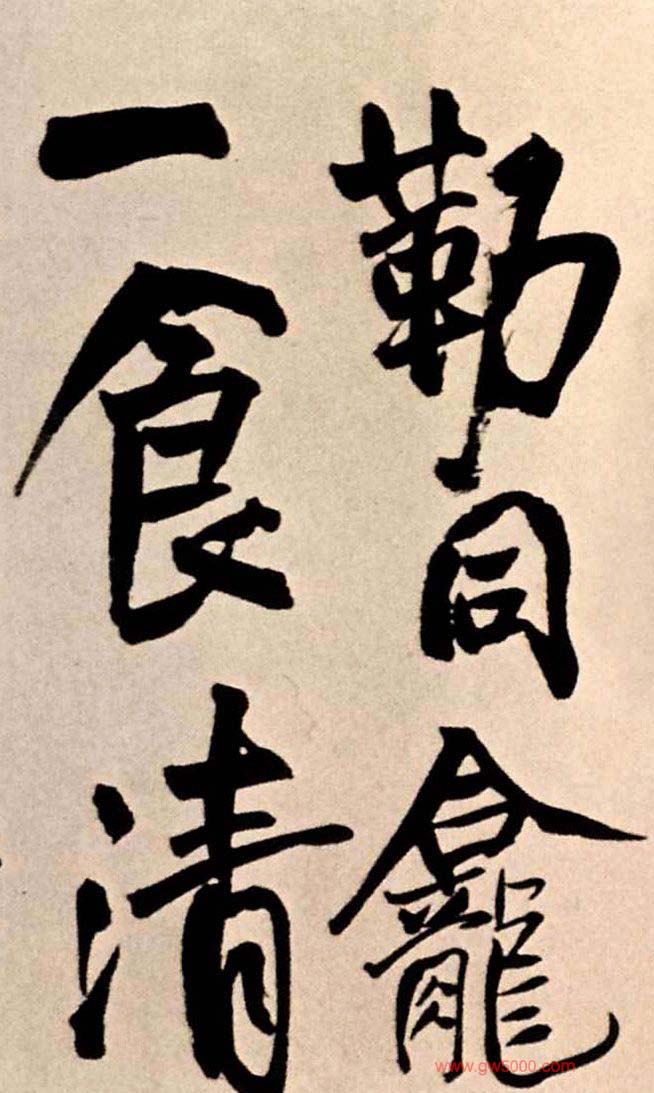 勒同龕
一食清
www.gw5000.com